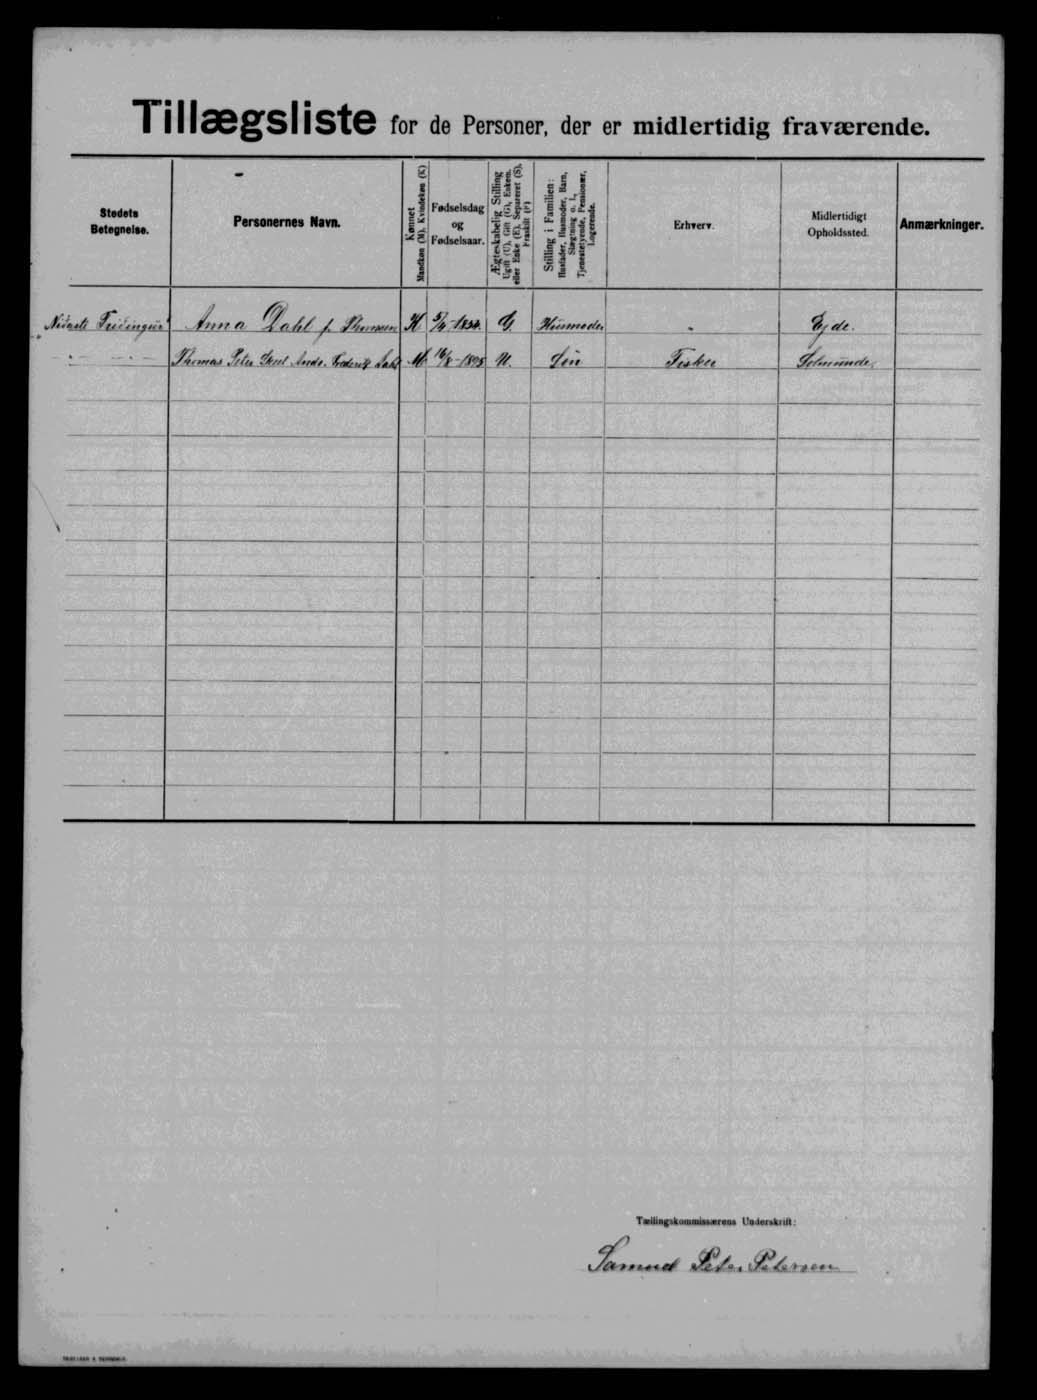 Tillægsliste for de Personer, der er midlertidig fraværende.
Stedets Betegnelse.
Personernes Navn.
Kønnet Mandkøn (M), Kvindekøn (K)
Fødselsdag og Fødselsaar.
Ægteskabelig Stilling Ugift (U), Gift (G), Enkem. eller Enke (E), Separeret (S), Fraskilt (F)
Stilling i Familien: Husfader, Husmoder, Barn, Slægtning o. l., Tjenestetyende, Pensionær, Logerende.
Erhverv.
Midlertidigt Opholdssted.
Anmærkninger.
Anna Dahl f. Thomsen K G. Husmoder " Ejde.
" " Thomas Peter Frederik Dahl M U. Søn Fisker
Tællingskommissærens Underskrift:
Samuel Peter Petersen